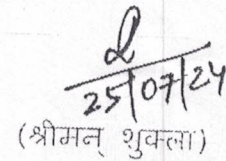 25/07/24
(श्रीमन् शुक्ला)